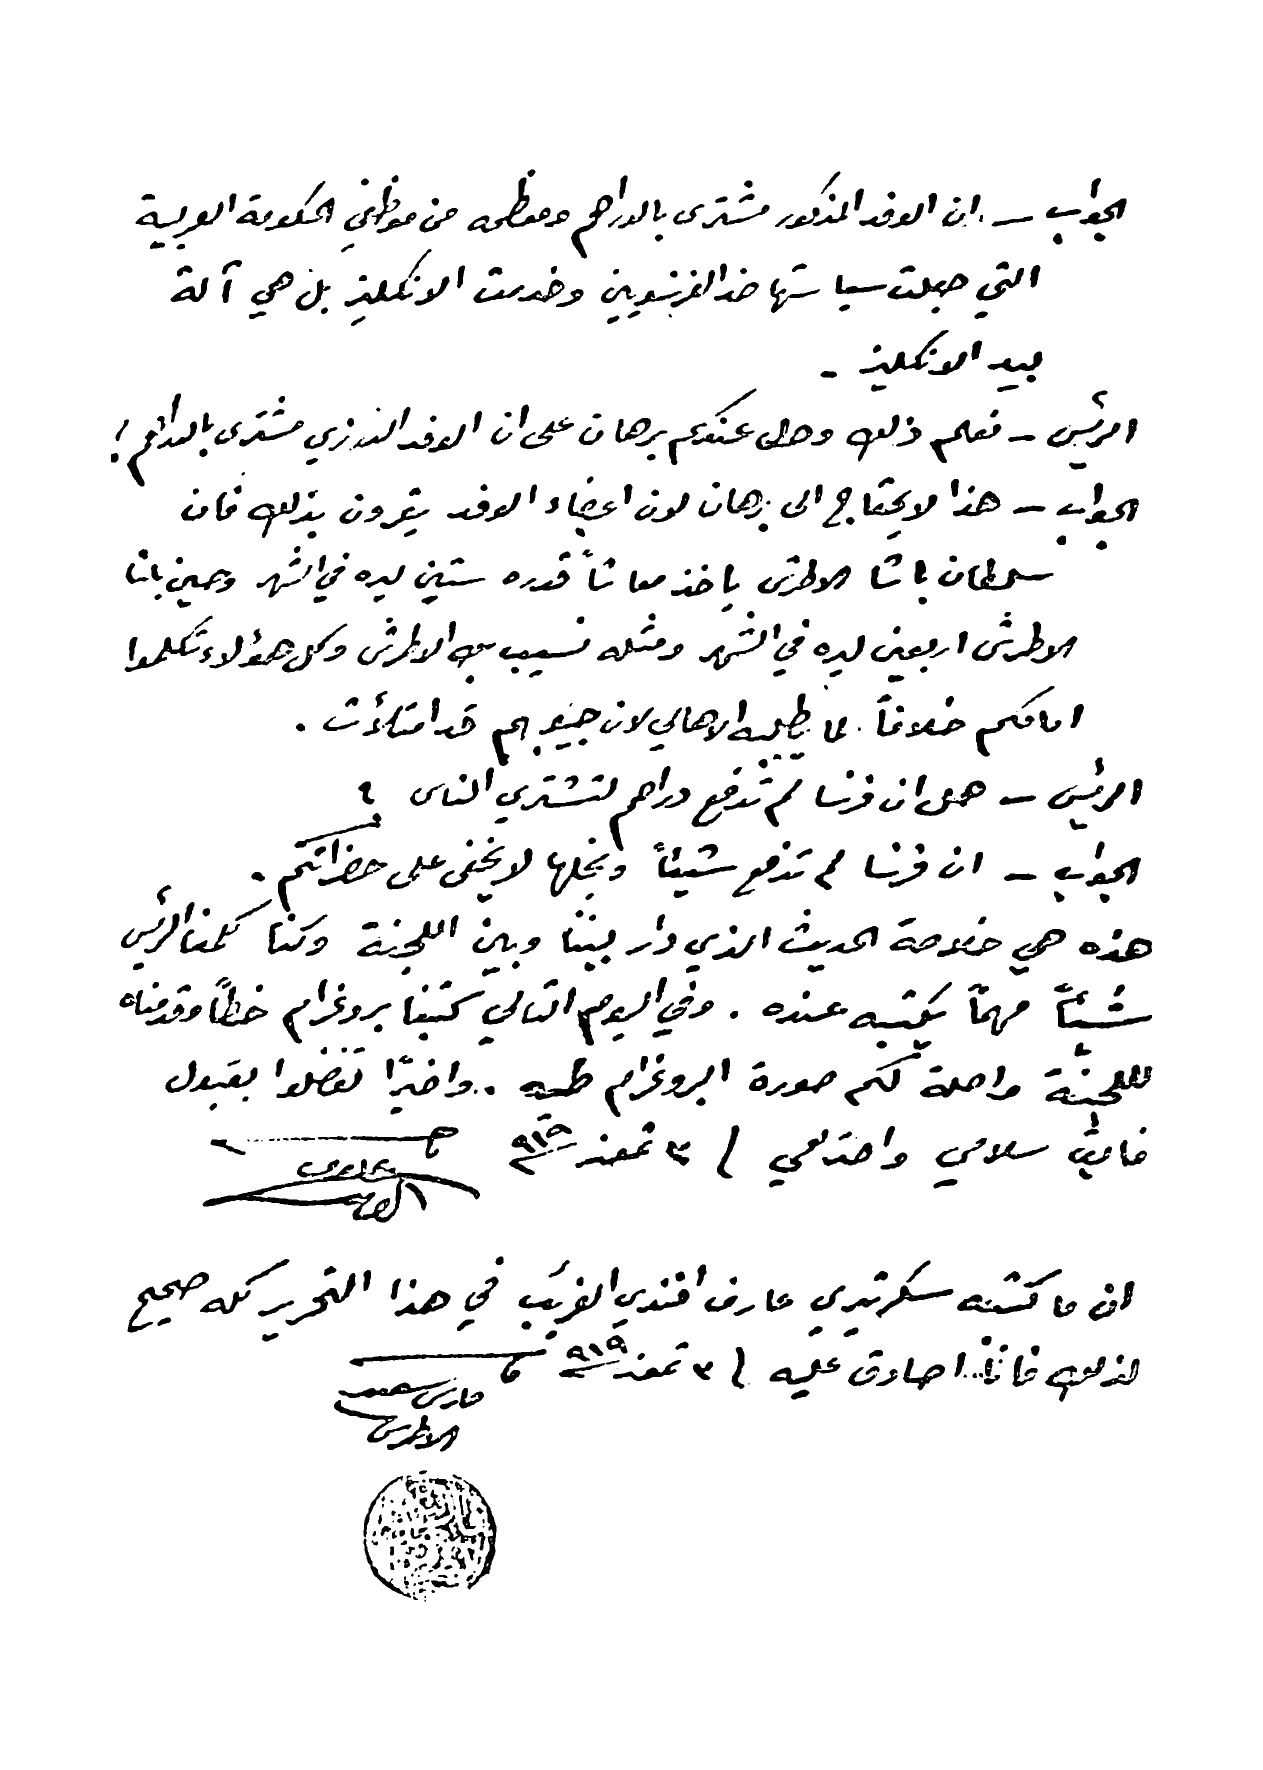 الجواب – ان الوفد المذكور مشترى بالدراهم ومعظمه من موظفي الحكومة العربية
التي جعلت سياستها ضد الفرنسويين وخدمت الانكليز بل هي آلة
بيد الانكليز -
الرئيس – نعلم ذلك وهل عندكم برهان على ان الوفد الدرزي مشترى بالدراهم !
الجواب – هذا لا يحتاج الى برهان لان اعضاء الوفد يقرون بذلك فان
سلطان باشا الاطرش ياخذ معاشاً قدره ستين ليره في الشهر وحسين باشا
الاطرش اربعين ليره في الشهر ومثله نسيب بك الاطرش وكل هؤلاء تكلموا
امامكم خلافاً لما يطلبه الاهالي لان جيوبهم قد امتلأت .
الرئيس – هل ان فرنسا لم تدفع دراهم لتشتري الناس ؟
الجواب – ان فرنسا لم تدفع شيئاً وبخلها لا يخفى على حضراتكم .
هذه هي خلاصة الحديث الذي دار بيننا وبين اللجنة وكنا كلمنا الرئيس
شيئاً مهماً يكتبه عنده . وفي اليوم التالي كتبنا بروغرام خطاً وقدمناه
للجنة واصلة لكم صورة البروغرام طيه .. واخيراً تفضلوا بقبول
فايق سلامي واحترامي / ٣ تموز ٩١٩
ان ما كتبه سكرتيري عارف افندي الغريب في هذا التحرير كله صحيح
لذلك فانا اصادق عليه / ٣ تموز ٩١٩
فارس سعيد
الاطرش